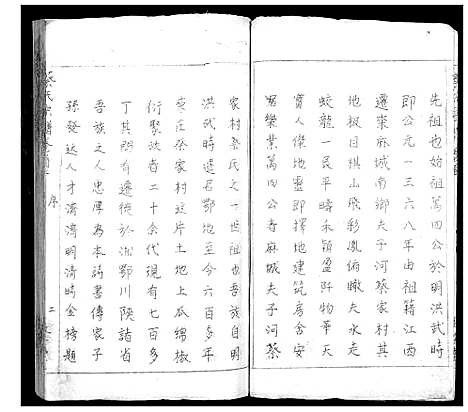 先祖也始祖萬四公於明洪武時
即公元一三六八年由祖籍江西
遷棗麻城南鄉夫子河蔡家村其
地極目祺山飛彩鳳俯瞰夫水走
蛟龍一艮平疇禾穎盈阡物華天
寶人傑地即擇地建筑房舍安
居樂業萬四公寺麻城夫子河蔡
家村蔡氏之一世祖也吾族自明
洪武時遷居鄂地至今六百多年
蔡庄徐家村這片土地上瓜綿椒
衍聚汝者二十余代現有七百多
丁其即有遷徙於湖鄂川陝諸省
吾族之人忠厚為本詩書傳家子
孫發达人才濟濟明清時金榜題
蔡氏宗譜
序
二